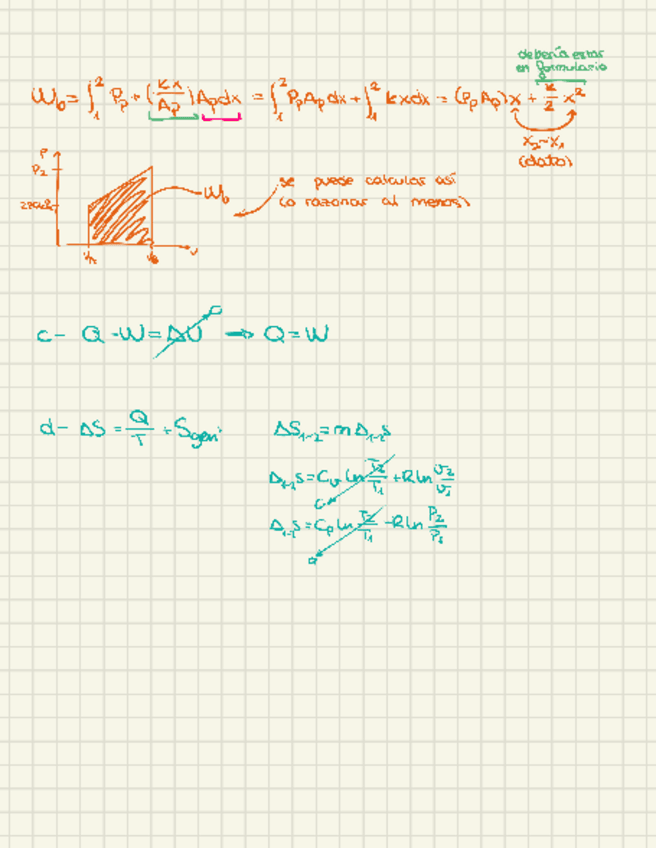 debería estar
en formulario
W_b = ∫₁² P_p + (kx/A_p) A_p dx = ∫₁² P_p A_p dx + ∫₁² kx dx = (P_p A_p) x + k/2 x²
x₂-x₁
(dato)
P
P₂
W_b
se puede calcular así
(o razonar al menos)
V
c- Q - W = ΔU → Q = W
d- ΔS = Q/T + S_gen
ΔS₁₋₂ = m Δ₁₋₂s
Δ₁₋₂s = C_v ln T₂/T₁ + R ln v₂/v₁
Δ₁₋₂s = C_p ln T₂/T₁ - R ln P₂/P₁